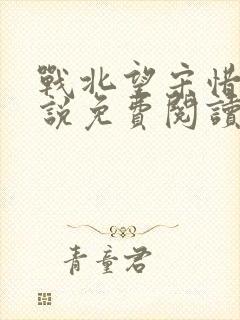 戰北望宋惜
說免費閱讀
青童君